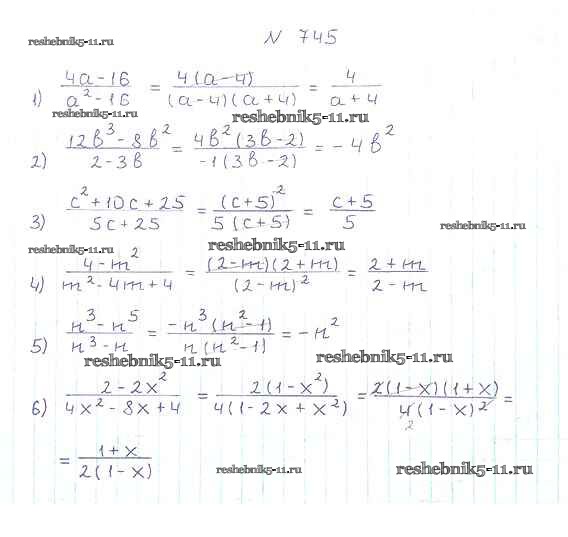 reshebnik5-11.ru N 745
1) (4a - 16)/(a² - 16) = (4(a-4))/((a-4)(a+4)) = 4/(a+4)
reshebnik5-11.ru reshebnik5-11.ru
2) (12b³ - 8b²)/(2 - 3b) = (4b²(3b-2))/(-1(3b-2)) = -4b²
3) (c² + 10c + 25)/(5c + 25) = (c+5)²/(5(c+5)) = (c+5)/5
reshebnik5-11.ru
reshebnik5-11.ru reshebnik5-11.ru
4) (4 - m²)/(m² - 4m + 4) = ((2-m)(2+m))/(2-m)² = (2+m)/(2-m)
5) (n³ - n⁵)/(n³ - n) = (-n³(n²-1))/(n(n²-1)) = -n²
reshebnik5-11.ru reshebnik5-11.ru
6) (2 - 2x²)/(4x² - 8x + 4) = (2(1-x²))/(4(1-2x+x²)) = (2(1-x)(1+x))/(4(1-x)²) =
2
= (1+x)/(2(1-x))
reshebnik5-11.ru reshebnik5-11.ru